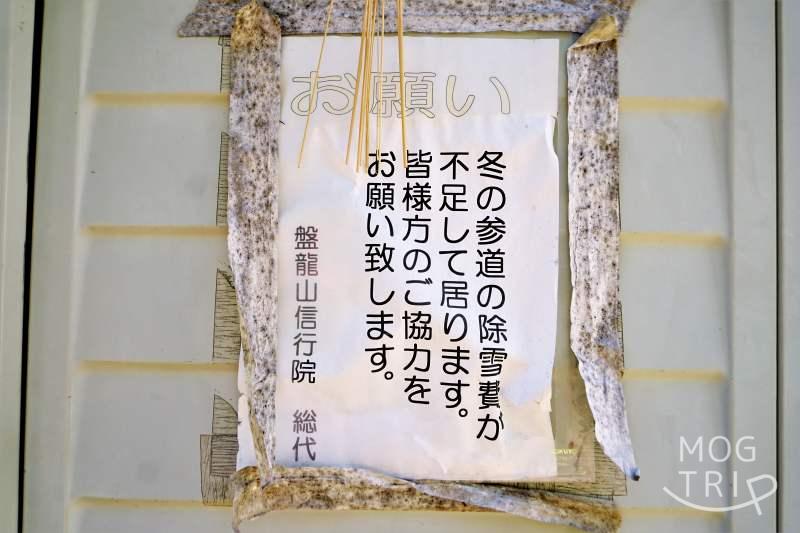 お願い
冬の参道の除雪費が
不足して居ります。
皆様方のご協力を
お願い致します。
盤龍山信行院 総代
MOG
TRIP